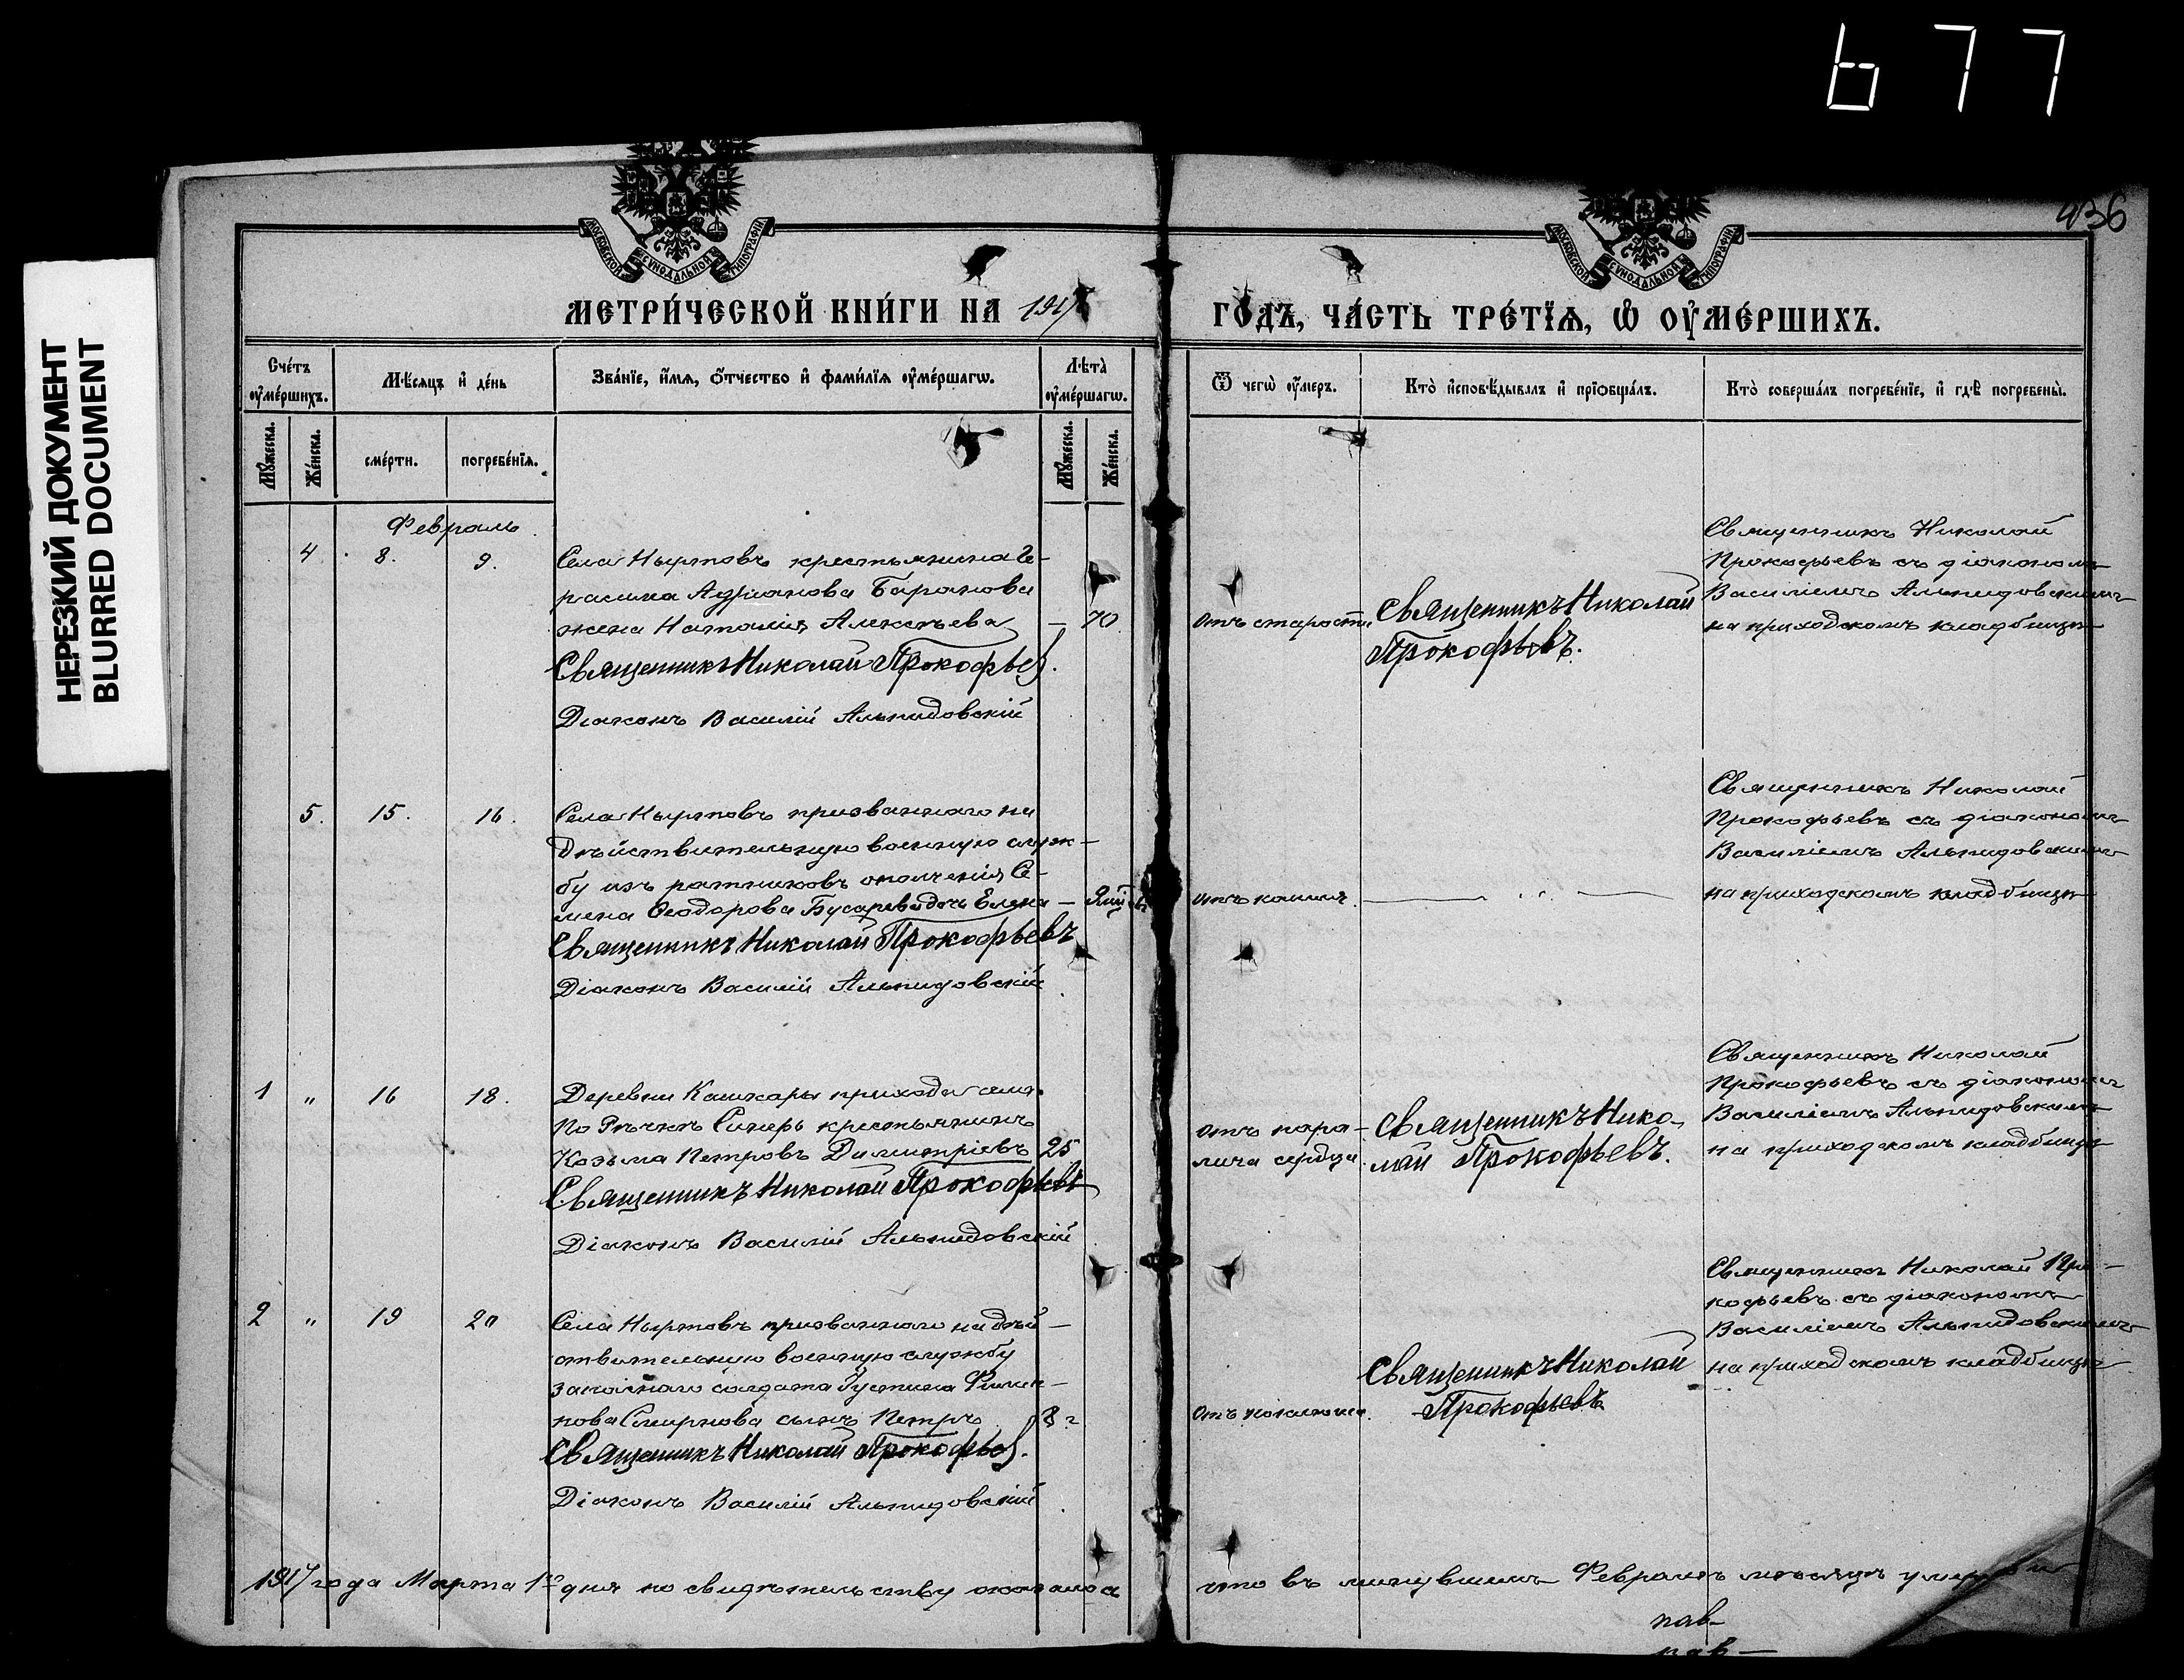 677
НЕРЕЗКИЙ ДОКУМЕНТ
BLURRED DOCUMENT
436
МОСКОВСКОЙ СѴНОДАЛЬНОЙ ТИПОГРАФІИ
МОСКОВСКОЙ СѴНОДАЛЬНОЙ ТИПОГРАФІИ
МЕТРИ́ЧЕСКОЙ КНИ́ГИ НА 1917
ГО́ДЪ, ЧА́СТЬ ТРЕ́ТЇѦ, Ѡ҆ ОУ҆МЕ́РШИХЪ.
Сче́тъ оу҆ме́ршихъ.
Мѣ́сѧцъ и҆ де́нь
Зва́нїе, и҆́мѧ, ѻ҆́тчество и҆ фами́лїѧ оу҆ме́ршагѡ.
Лѣта̀ оу҆ме́ршагѡ.
Ѿ чегѡ̀ оу҆́меръ.
Кто̀ и҆сповѣ́дывалъ и҆ прїѡбща́лъ.
Кто̀ соверша́лъ погребе́нїе, и҆ гдѣ̀ погребены̀.
Мꙋ́жеска.
Же́нска.
сме́рти.
погребе́нїѧ.
Мꙋ́жеска.
Же́нска.
Февраль
4 8. 9.
Села Ныртовъ крестьянина Ге-
расима Адрианова Баранова
жена Наталія Алексѣева — 70
Священникъ Николай Прокофьев.
Діаконъ Василій Альпидовскій
Отъ старости
Священникъ Николай
Прокофьевъ.
Священникъ Николай
Прокофьевъ съ діакономъ
Василіемъ Альпидовскимъ
на приходскомъ кладбищѣ
5. 15. 16.
Села Ныртовъ призваннаго на
дѣйствительную военную служ-
бу изъ ратниковъ ополченія Се-
мена Ѳеодорова дочь Елена —
Священникъ Николай Прокофьевъ
Діаконъ Василій Альпидовскій
отъ кашля.
Священникъ Николай
Прокофьевъ съ діакономъ
Василіемъ Альпидовскимъ
на приходскомъ кладбищѣ
1 " 16 18.
Деревни Кашкары прихода села
по Рѣчкѣ крестьянинъ
Козьма Петровъ Димитріевъ 25
Священникъ Николай Прокофьевъ
Діаконъ Василій Альпидовскій
отъ пара-
лича сердца.
Священникъ Нико-
лай Прокофьевъ.
Священникъ Николай
Прокофьевъ съ діакономъ
Василіемъ Альпидовскимъ
на приходскомъ кладбищѣ
2 " 19 20
Села Ныртовъ призваннаго на дѣй-
ствительную военную службу
запаснаго солдата Филип-
пова Смирнова сынъ Петръ 8 г
Священникъ Николай Прокофьев.
Діаконъ Василій Альпидовскій
Отъ коклюша.
Священникъ Николай
Прокофьевъ
Священникъ Николай Про-
кофьевъ съ діакономъ
Василіемъ Альпидовскимъ
на приходскомъ кладбищѣ
1917 года Марта 1го дня по свидѣтельству оказалось
что въ минувшемъ Февралѣ мѣсяцѣ